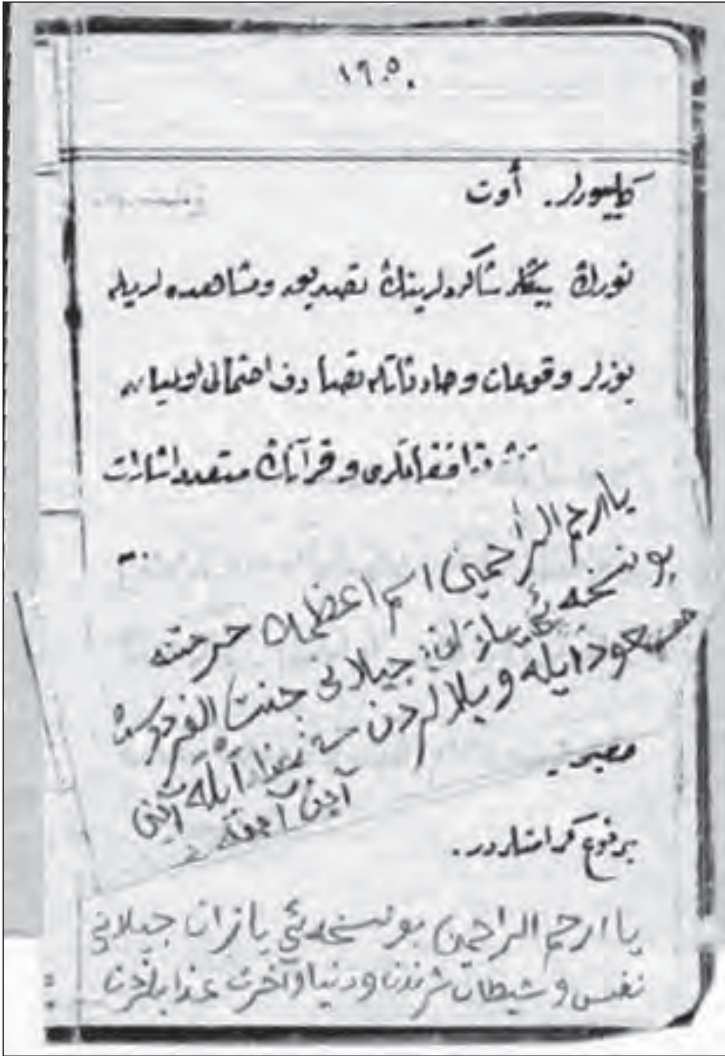 ١٦٠٥٠
كلييورلر. أوت
نورڭ بيڭلر شاكردلرينڭ تصديق ومشاهده لريله
يوزلر وقوعات و حادثاتله تصادف احتمالى اولميان
توافقلرى و قرآنڭ متعدد اشارات
يا ارحم الراحمين اسم اعظمڭ حرمتنه
بو نسخه ئى يازان جيلانى جنت الفردوسده
مسعود ايله و بلالردن ايله آمين
آمين آمين
بر نوع كرامتلردر.
يا ارحم الراحمين بو نسخه ئى يازان جيلانى
نفس و شيطان شرندن و دنيا و آخرت عذابلرندن